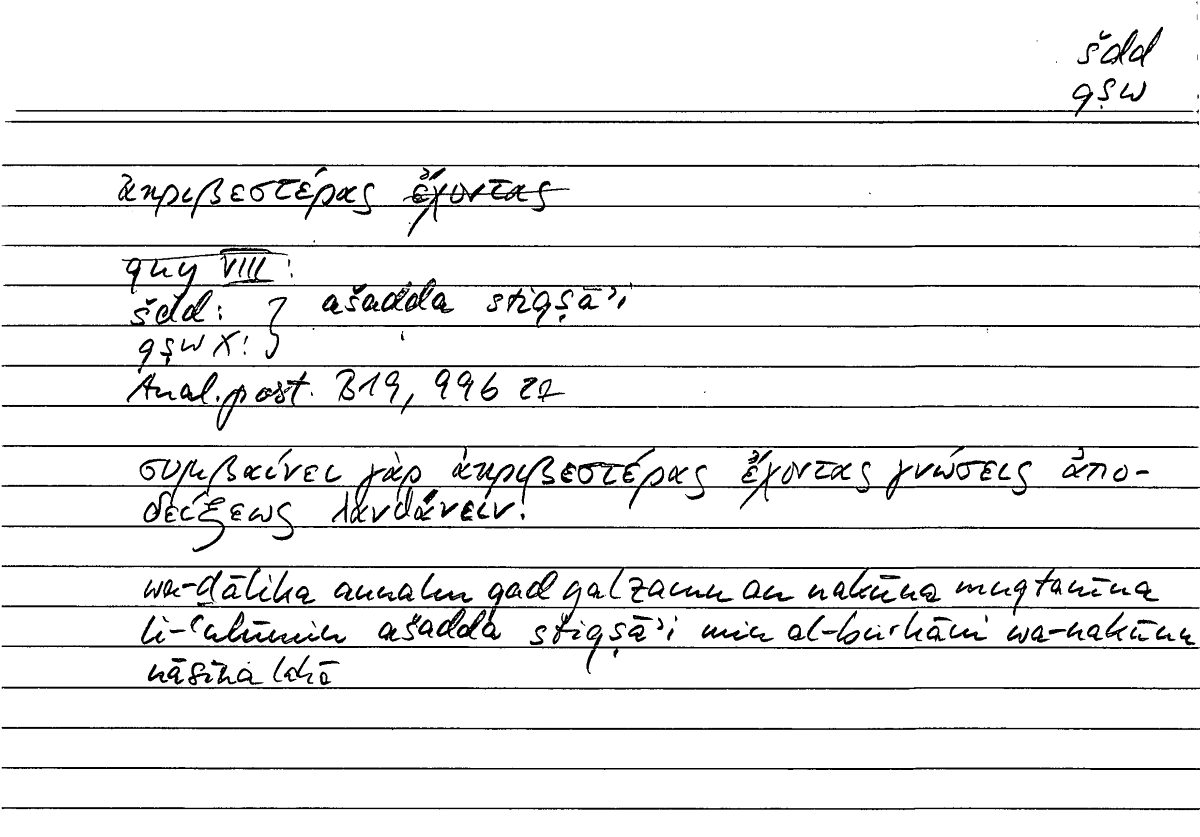 šdd
qṣw
ἀκριβεστέρας ἔχοντας
qny VIII:
šdd: } ašadda stiqṣāʾi
qṣw X:
Anal. post. B19, 99b 27
συμβαίνει γὰρ ἀκριβεστέρας ἔχοντας γνώσεις ἀπο-
δείξεως λανθάνειν.
wa-ḏālika annahu qad yalzamu an nakūna muqtanīna
li-ʿulūmin ašadda stiqṣāʾi min al-burhāni wa-nakūnu
nāsīna lahā